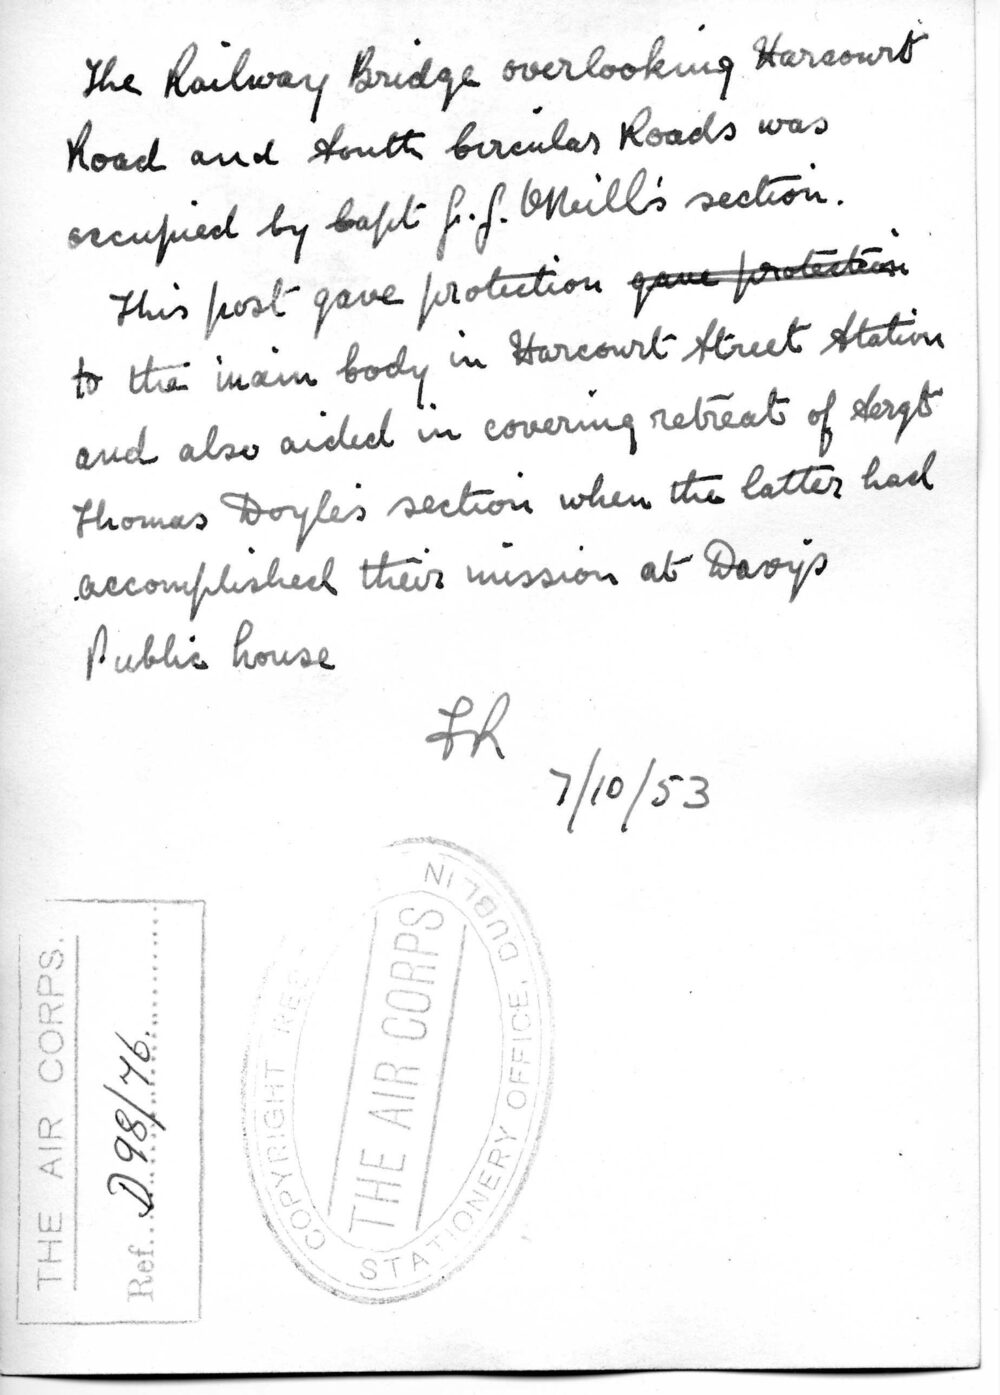 The Railway Bridge overlooking Harcourt
Road and South Circular Roads was
occupied by Capt J. J. O'Neill's section.
This post gave protection gave protection
to the main body in Harcourt Street Station
and also aided in covering retreat of Sergt
Thomas Doyle's section when the latter had
accomplished their mission at Davy's
Public house
7/10/53
THE AIR CORPS.
Ref... D98/76
COPYRIGHT RES
THE AIR CORPS
STATIONERY OFFICE, DUBLIN